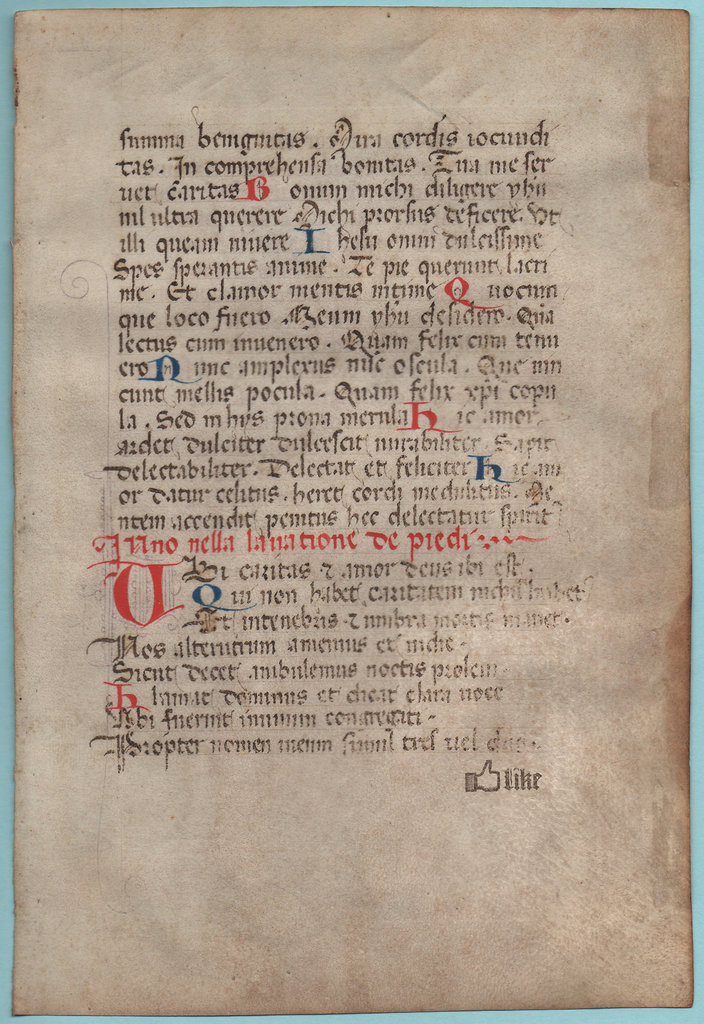 summa benignitas. Mira cordis iocundi
tas. In comprehensa bonitas. Tua me ser
uet caritas Bonum michi diligere yhu
nil ultra querere Michi prorsus deficere. Vt
illi queam uiuere Ihesu omni dulcissime
Spes sperantis anime. Te pie querunt lacri
me. Et clamor mentis intime Quocum
que loco fuero Meum yhu desidero. Qua
lectus cum inuenero. Quam felix cum tenu
ero Nunc amplexus nunc oscula. Que uin
cunt mellis pocula. Quam felix xpi copu
la. Sed in hys prona merula Hic amor
ardet dulciter dulcescit mirabiliter. Sapit
delectabiliter. Delectat et feliciter Hic am
or datur celitus. heret cordi medulitus. Me
ntem accendit penitus hec delectatur spirit
Inno nella lauatione de piedi
Ubi caritas z amor deus ibi est.
Qui non habet caritatem nichil habet
Et in tenebris z umbra mortis manet.
Nos alterutrum amemus et in die.
Sicut decet ambulemus noctis prolem
Klamat dominus et dicat clara uoce
Vbi fuerint in unum congregati.
Propter nomen meum simul tres uel duo.
like